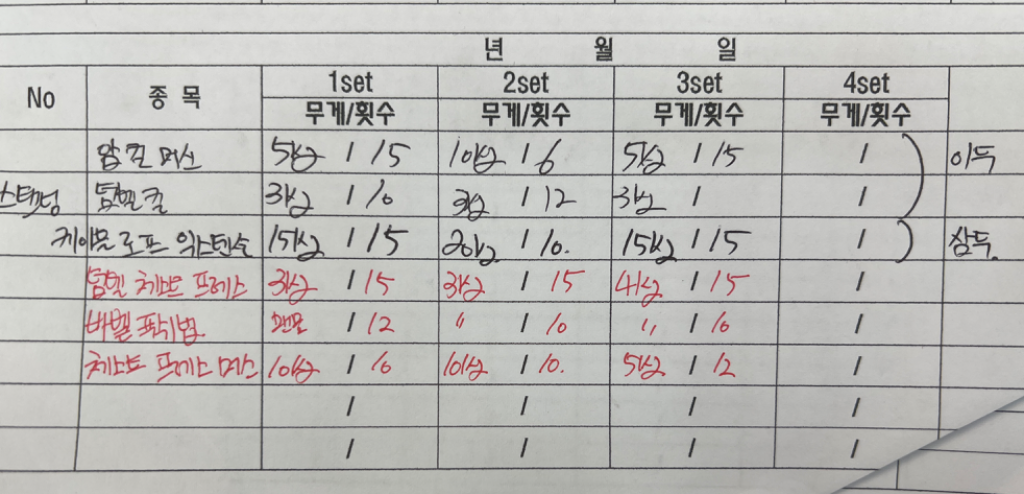 년 월 일
No 종 목 1set 2set 3set 4set
무게/횟수 무게/횟수 무게/횟수 무게/횟수
암 컬 머신 5kg / 15 10kg / 6 5kg / 15 / 이두
스탠딩 덤벨 컬 3kg / 10 3kg / 12 3kg / /
케이블 로프 익스텐션 15kg / 15 20kg / 10. 15kg / 15 / 삼두.
덤벨 체스트 프레스 3kg / 15 3kg / 15 4kg / 15 /
바벨 / 12 " / 10 " / 10 /
체스트 프레스 머신 10kg / 10 10kg / 10. 5kg / 12 /
/ / / /
/ / / /